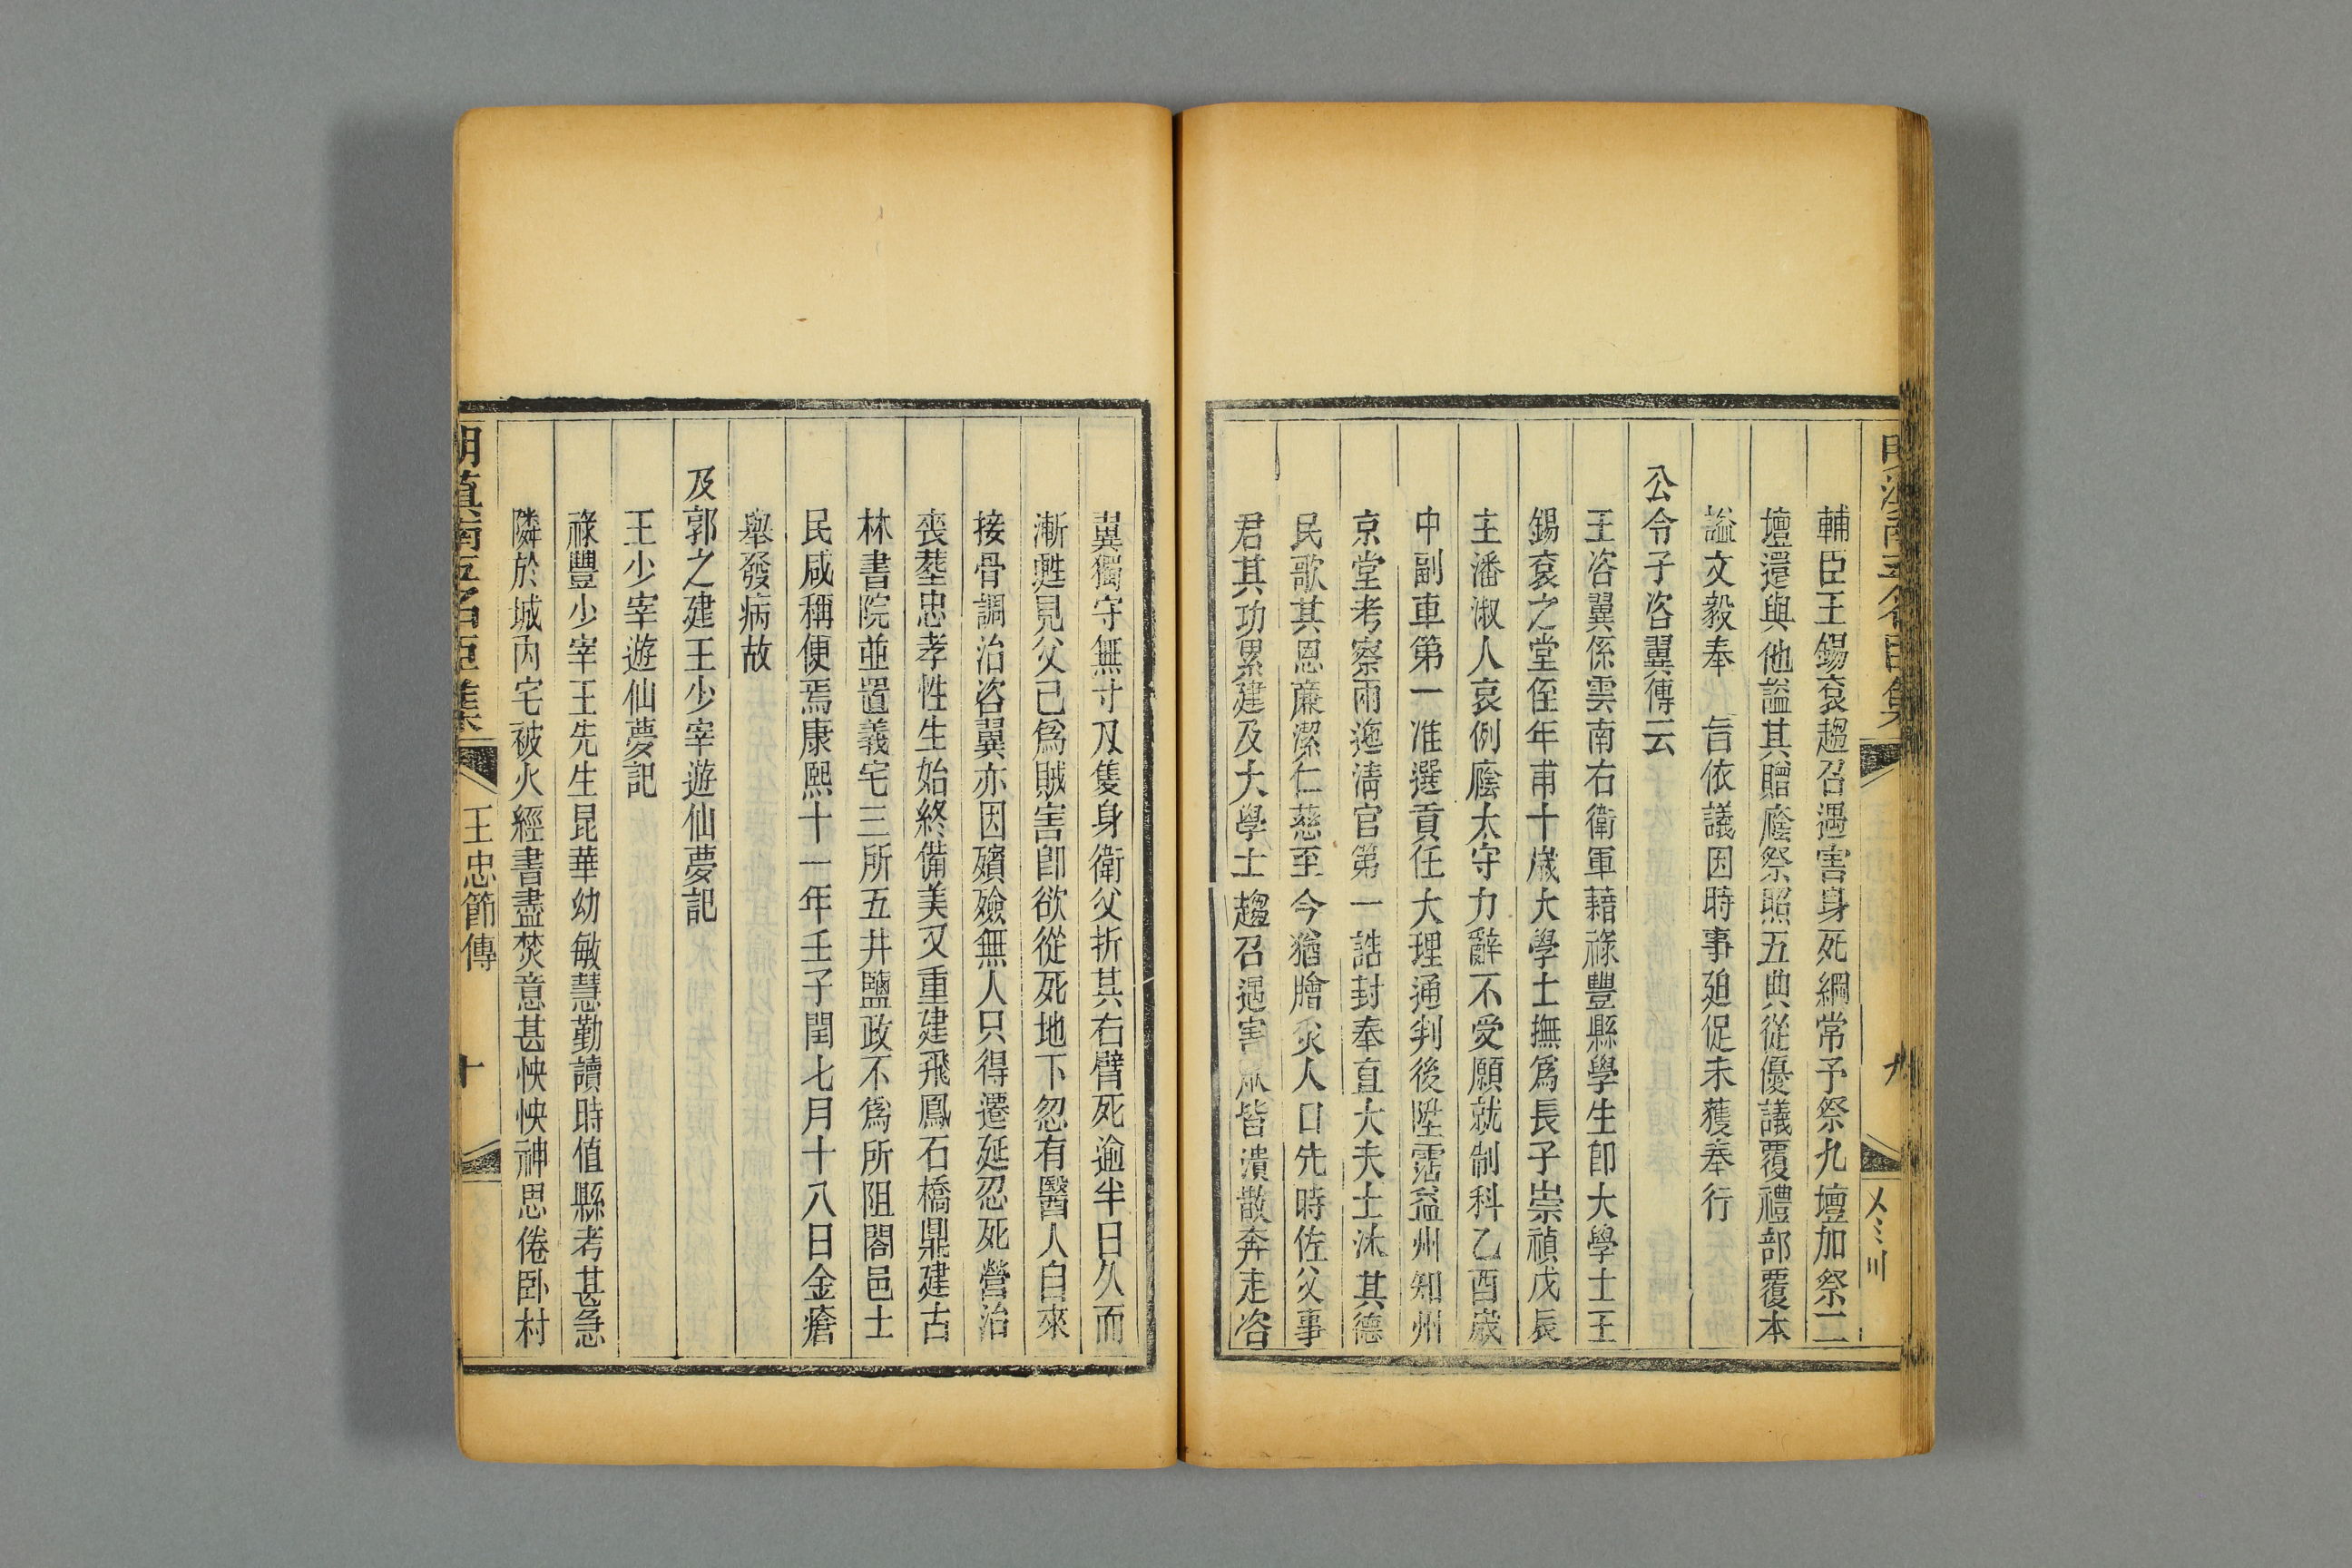 輔臣王錫袞趨召遇害身死綱常予祭九壇加祭二
壇還與他謚其贈廕祭照五典從優議覆禮部覆本
謚文毅奉　旨依議因時事廹促未獲奉行
公令子咨翼傳云
王咨翼係雲南右衛軍藉祿豐縣學生卽大學士王
錫袞之堂侄年甫十歲大學士撫爲長子崇禎戊辰
主潘淑人哀例廕太守力辭不受願就制科乙酉歲
中副車第一准選貢任大理通判後陞霑益州知州
京堂考察兩迤淸官第一誥封奉直大夫士沐其德
民歌其恩廉潔仁慈至今猶膾炙人口先時佐父事
君其功累建及大學士趨召遇害眾皆潰散奔走咨
翼獨守無寸刄隻身衛父折其右臂死逾半日久而
漸甦見父已爲賊害卽欲從死地下忽有醫人自來
接骨調治咨翼亦因殯殮無人只得遷延忍死營治
喪塟忠孝性生始終備美又重建飛鳳石橋鼎建古
林書院並置義宅三所五井鹽政不爲所阻閤邑士
民咸稱便焉康熙十一年壬子閏七月十八日金瘡
舉發病故
及郭之建王少宰遊仙夢記
王少宰遊仙夢記
祿豐少宰王先生昆華幼敏慧勤讀時值縣考甚急
隣於城內宅被火經書盡焚意甚怏怏神思倦卧村
王忠節傳
十